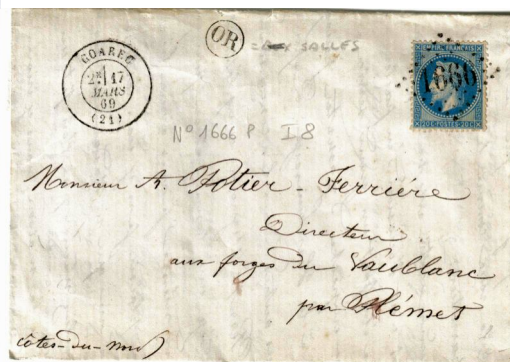 OR
= SALLES
GOAREC
2E 17
MARS
69
(21)
EMPIRE FRANCAIS
1666
20C POSTES 20C
N° 1666 P I8
Monsieur A. Potier-Ferrière
Directeur
aux forges du Vaublanc
par Plémet
côtes-du-Nord